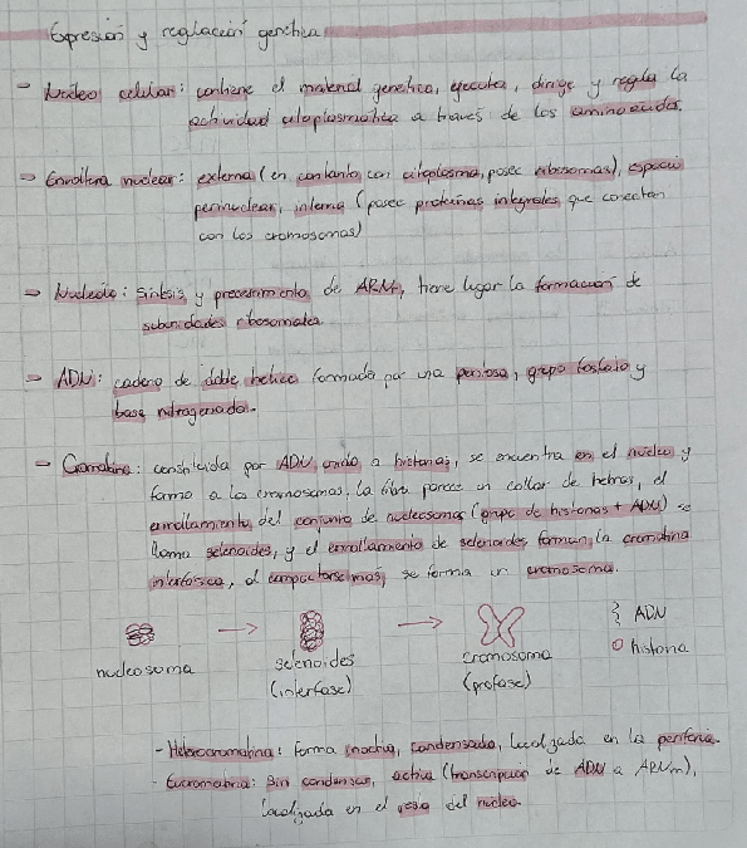 Expresión y regulación genética
- Núcleo celular: contiene el material genético, ejecuta, dirige y regula la
actividad citoplasmática a través de los aminoácidos.
- Envoltura nuclear: externa (en contacto con citoplasma, posee ribosomas), espacio
perinuclear, interna (posee proteínas integrales que conectan
con los cromosomas)
- Nucleolo: Síntesis y procesamiento de ARNr, tiene lugar la formación de
subunidades ribosomales.
- ADN: cadena de doble hélice formada por una pentosa, grupo fosfato y
base nitrogenada.
- Cromatina: constituida por ADN unido a histonas, se encuentra en el núcleo y
forma a los cromosomas, la fibra parece un collar de hebras, el
enrollamiento del conjunto de nucleosomas (grupo de histonas + ADN) se
llama selenoides, y el enrollamiento de selenoides forman la cromatina
interfásica, al compactarse más, se forma un cromosoma.
nucleosoma → selenoides → cromosoma
(interfase) (profase)
ADN
histona
- Heterocromatina: Forma inactiva, condensada, localizada en la periferia.
- Eucromatina: Sin condensar, activa (transcripción de ADN a ARNm),
localizada en el resto del núcleo.